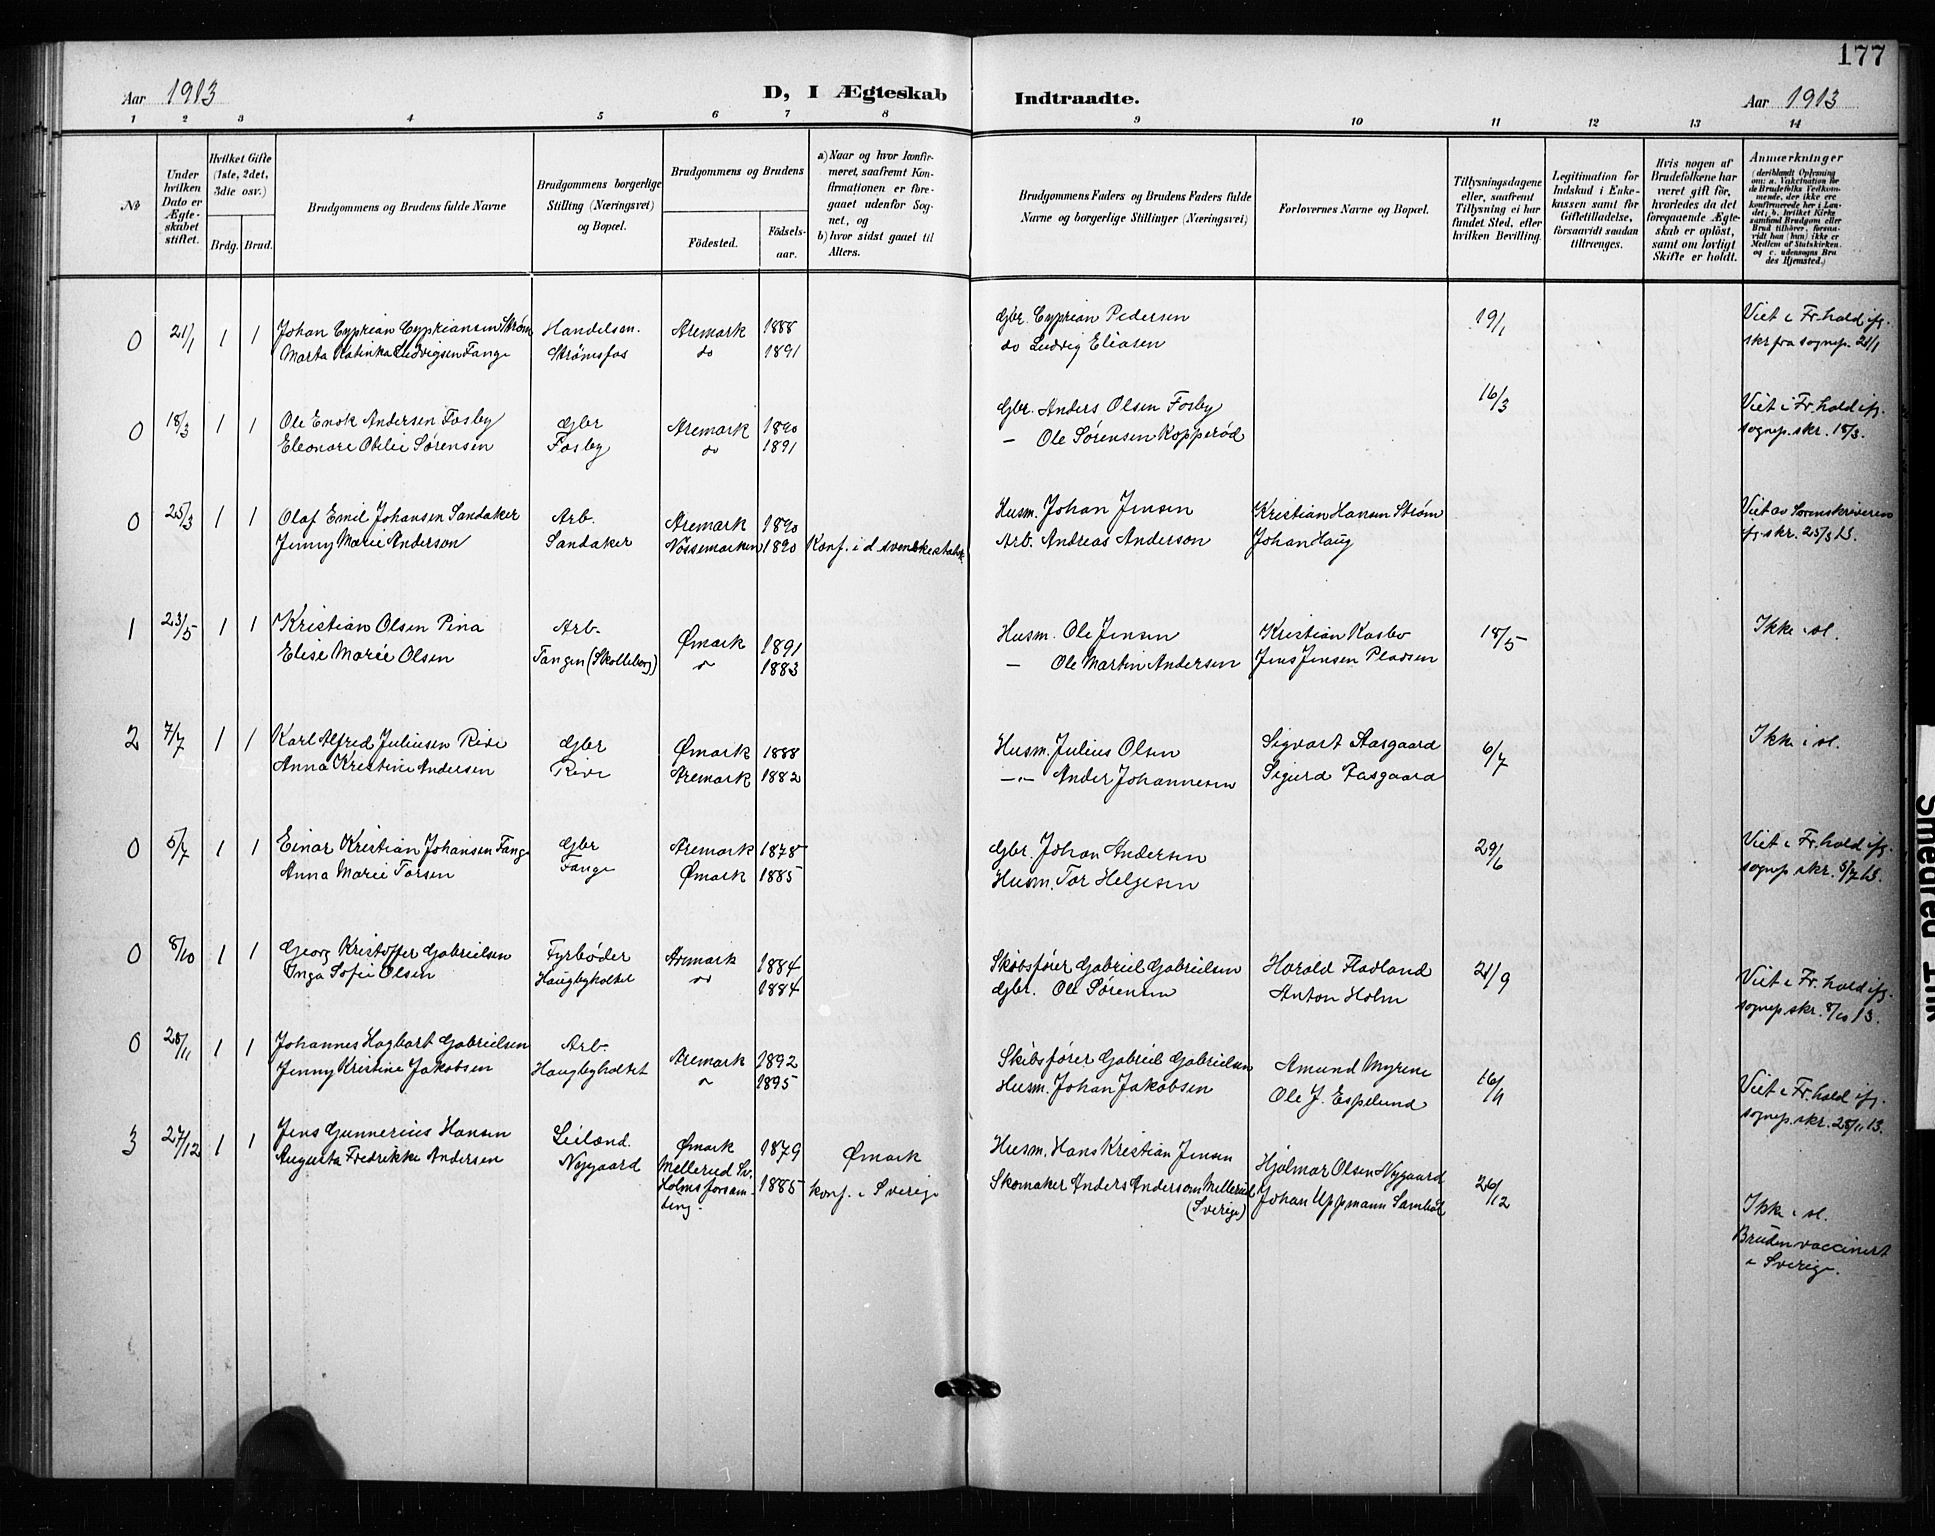 177
Aar 1913
D, I Ægteskab Indtraadte.
Aar 1913
1 2 3 4 5 6 7 8 9 10 11 12 13 14
No
Under hvilken Dato er Ægteskabet stiftet.
Hvilket Gifte (1ste, 2det, 3die osv.)
Brdg. Brud.
Brudgommens og Brudens fulde Navne
Brudgommens borgerlige Stilling (Næringsvei) og Bopæl.
Brudgommens og Brudens
Födested.
Födselsaar.
a) Naar og hvor konfirmeret, saafremt Konfirmationen er foregaaet udenfor Sognet, og
b) hvor sidst gaaet til Alters.
Brudgommens Faders og Brudens Faders fulde Navne og borgerlige Stillinger (Næringsvei)
Forlovernes Navne og Bopæl.
Tillysningsdagene eller, saafremt Tillysning ei har fundet Sted, efter hvilken Bevilling.
Legitimation for Indskud i Enkekassen samt for Giftetilladelse, forsaavidt saadan tiltrænges.
Hvis nogen af Brudefolkene har været gift før, hvorledes da det foregaaende Ægteskab er oplöst, samt om lovligt Skifte er holdt.
Anmærkninger
(deriblandt Oplysning om: a. Vakcination for de Brudefolks Vedkommende, der ikke ere konfirmerede her i Landet; b. hvilket Kirkesamfund Brudgom eller Brud tilhörer, forsaavidt han (hun) ikke er Medlem af Statskirken, og c. udensogns Brudes Hjemsted.)
0 21/1 1 1 Johan Cyprian Cypriansen Strøm Handelsm. Aremark 1888 Gbr. Cyprian Pedersen 19/1 Viet i Fr.hold ifg.
Marta Katinka Ludvigsen Fange Strømsfos do 1891 do Ludvig Eliasen skr fra sognep. 21/1
0 18/3 1 1 Ole Enok Andersen Fosby Gbr Aremark 1890 Gbr. Anders Olsen Fosby 16/3 Viet i Fr.hold ifg.
Eleonore Otilie Sørensen Fosby do 1891 — Ole Sørensen Kopperød sognep. skr. 18/3.
0 25/3 1 1 Olaf Emil Johansen Sandaker Arb. Aremark 1890 Husm. Johan Jensen Kristian Hansen Strøm Viet av Sorenskriveren
Jenny Marie Anderson Sandaker Nössemarken 1890 Konf. i d svenske statsk Arb. Andreas Anderson Johan Haug ifg. skr. 25/3 13.
1 23/5 1 1 Kristian Olsen Pina Arb. Ømark 1891 Husm. Ole Jensen Kristian Kasbo 18/5 Ikke i sl.
Elise Marie Olsen Tangen (Skolleborg) do 1883 — Ole Martin Andersen Jens Jensen Pladsen
2 7/7 1 1 Karl Alfred Juliusen Rive Gbr Ømark 1888 Husm. Julius Olsen Sigvart Aasgaard 6/7 Ikke i sl.
Anna Kristine Andersen Rive Aremark 1882 —"— Ander Johannesen Sigurd Aasgaard
0 5/7 1 1 Einar Kristian Johansen Fange Gbr Aremark 1878 Gbr. Johan Andersen 29/6 Viet i Fr.hold ifg.
Anna Marie Torsen Fange Ømark 1885 Husm. Tor Helgesen sognep skr. 5/7 13.
0 8/10 1 1 Georg Kristoffer Gabrielsen Fyrbøder Aremark 1884 Skibsfører Gabriel Gabrielsen Harald Fladland 21/9 Viet i Fr.hold ifg.
Inga Sofie Olsen Haugbyholtet do 1884 Gbr. Ole Sørensen Anton Holm sognep skr. 8/10 13.
0 28/11 1 1 Johannes Hagbart Gabrielsen Arb. Aremark 1892 Skibsfører Gabriel Gabrielsen Amund Myrene 16/11 Viet i Fr.hold ifg.
Jenny Kristine Jakobsen Haugbyholtet do 1895 Husm. Johan Jakobsen Ole J. Espelund sognep. skr. 28/11 13.
3 27/12 1 1 Jens Gunnerius Hansen Leilænd. Ømark 1879 Ømark Husm. Hans Kristian Jensen Hjalmar Olsen Nygaard 26/12 Ikke i sl.
Augusta Fredrikke Andersen Nygaard Mellerud Sv. Holms forsamling. 1885 konf. i Sverige Skomaker Anders Anderson Mellerud (Sverige) Johan Uppmann Sambøl Bruden vaccinert i Sverige.
Smedrød Eri